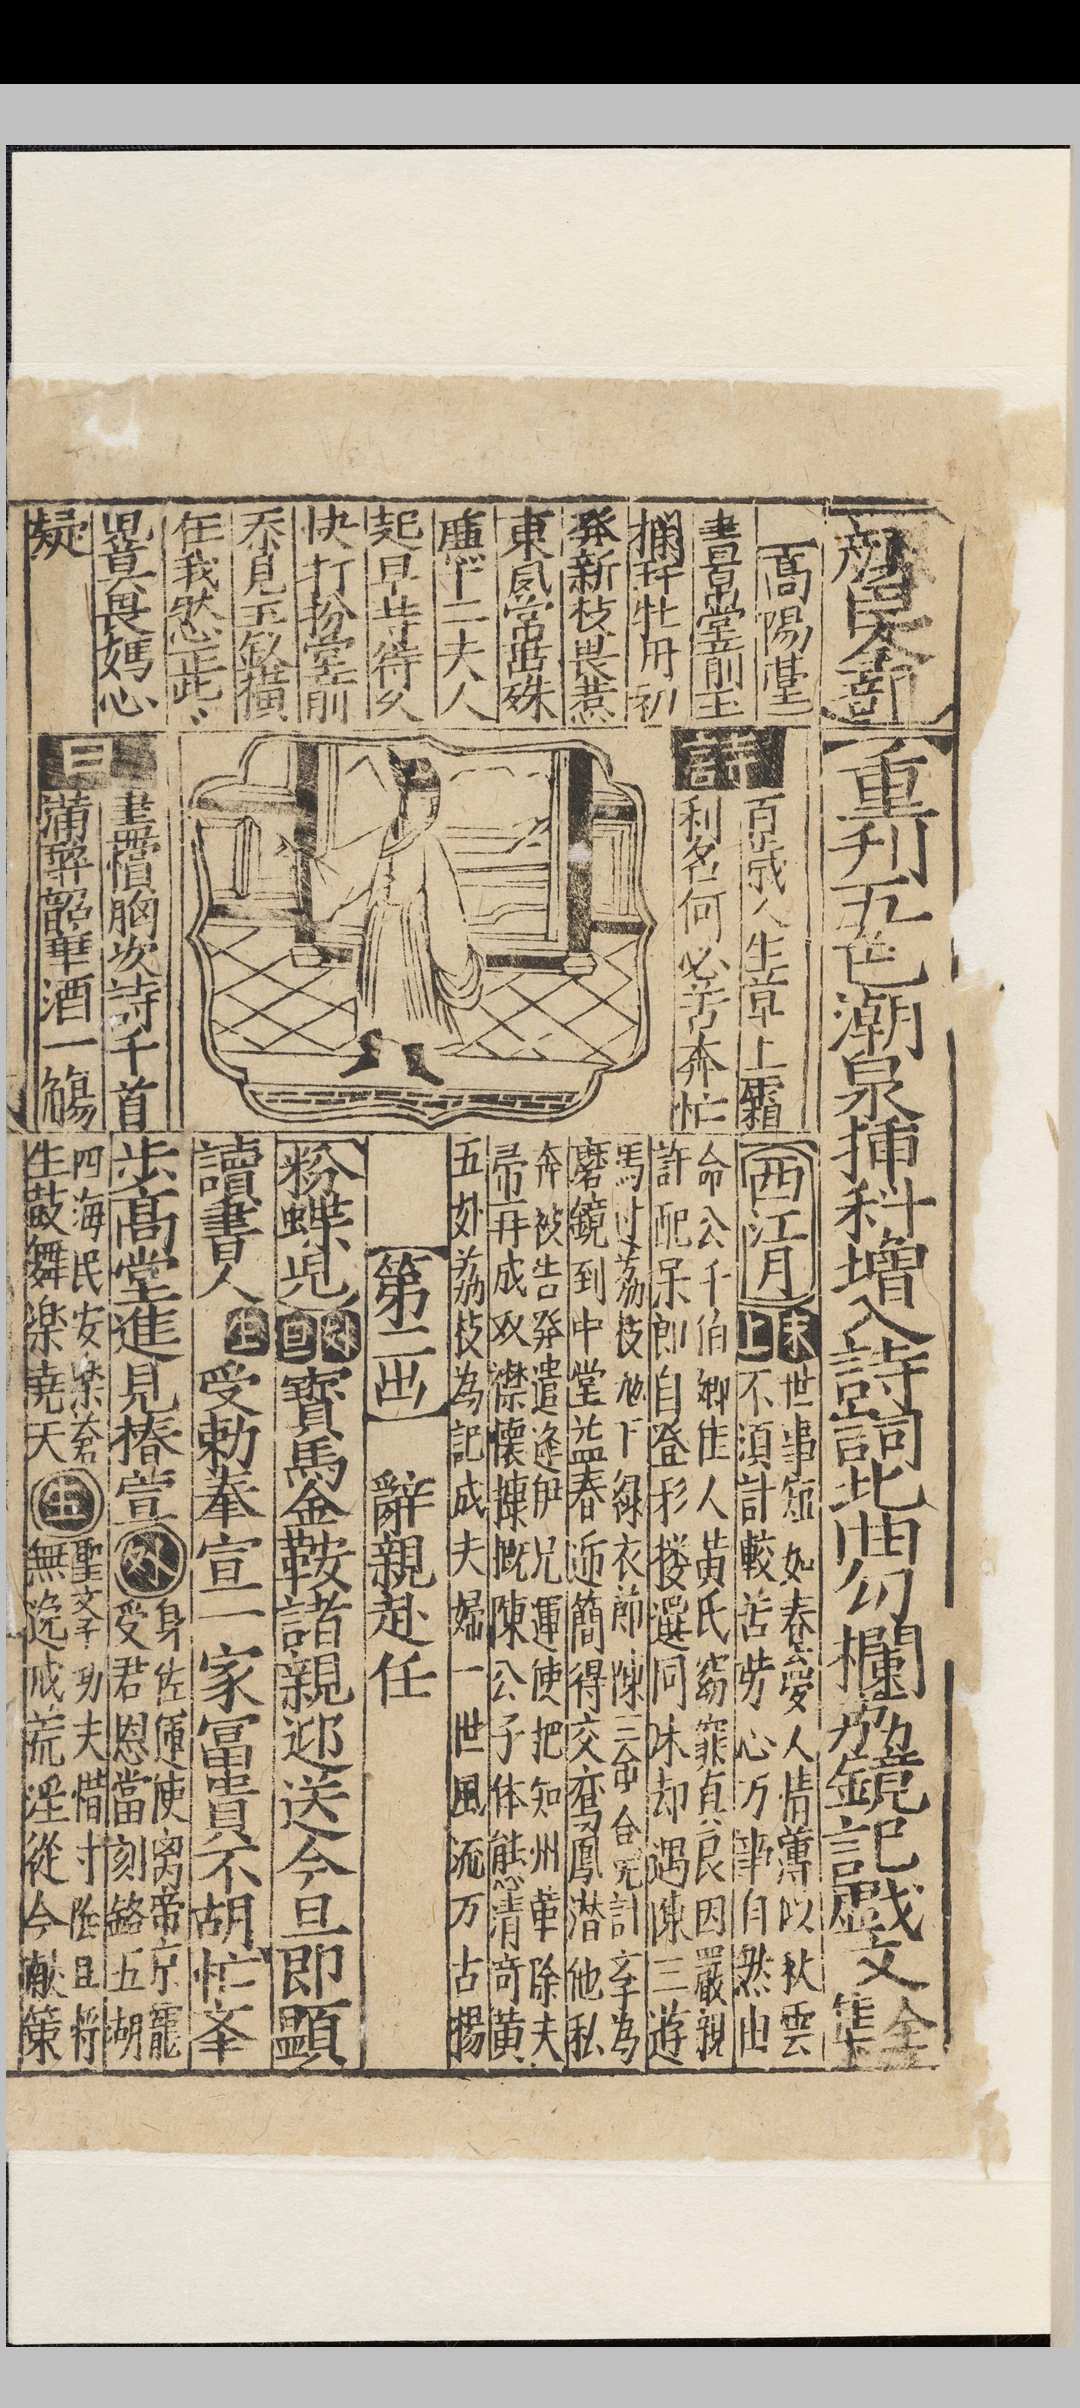 重刊五色潮泉插科增入詩詞北曲勾欄荔鏡記戲文全集
顏臣全部
高陽臺
晝景堂前玉
攔玕牡丹初
發新枝畏惹
東風當面殊
二夫人
起早時待久
快打扮堂前
見玉釵橫
任我然此
畏媽心
疑
詩
百歲人生草上霜
利名何必苦奔忙
盡償胸次詩千首
滿醉韶華酒一觴
曰
西江月
末上
世事短如春夢人情薄似秋雲
不須計較苦勞心万事自然由
命公千伯卿佳人黃氏窈窕貞良因嚴親
許配呆郎自登彩楼選同床却遇陳三遊
馬过荔枝拋下綠衣郎陳三会合無計孛為
磨鏡到中堂益春近簡得交鸞鳳潜他私
奔被告発遣逢伊兄運使把知州革除夫
帚再成双襟懷慷慨陳公子体態清奇黃
五娘荔枝為記成夫婦一世風流万古揚
第二出
辭親赴任
粉蝶児
外旦
寶馬金鞍諸親迎送今旦即顯
讀書人
生
受勅奉宣一家富貴不胡忙峯
步高堂進見椿萱
外
身佐運使离帝京寵
受君恩當刻銘五湖
四海民安樂蒼
生鼓舞樂堯天
生
聖文字功夫惜寸陰且將
無逸戒荒淫從今献策